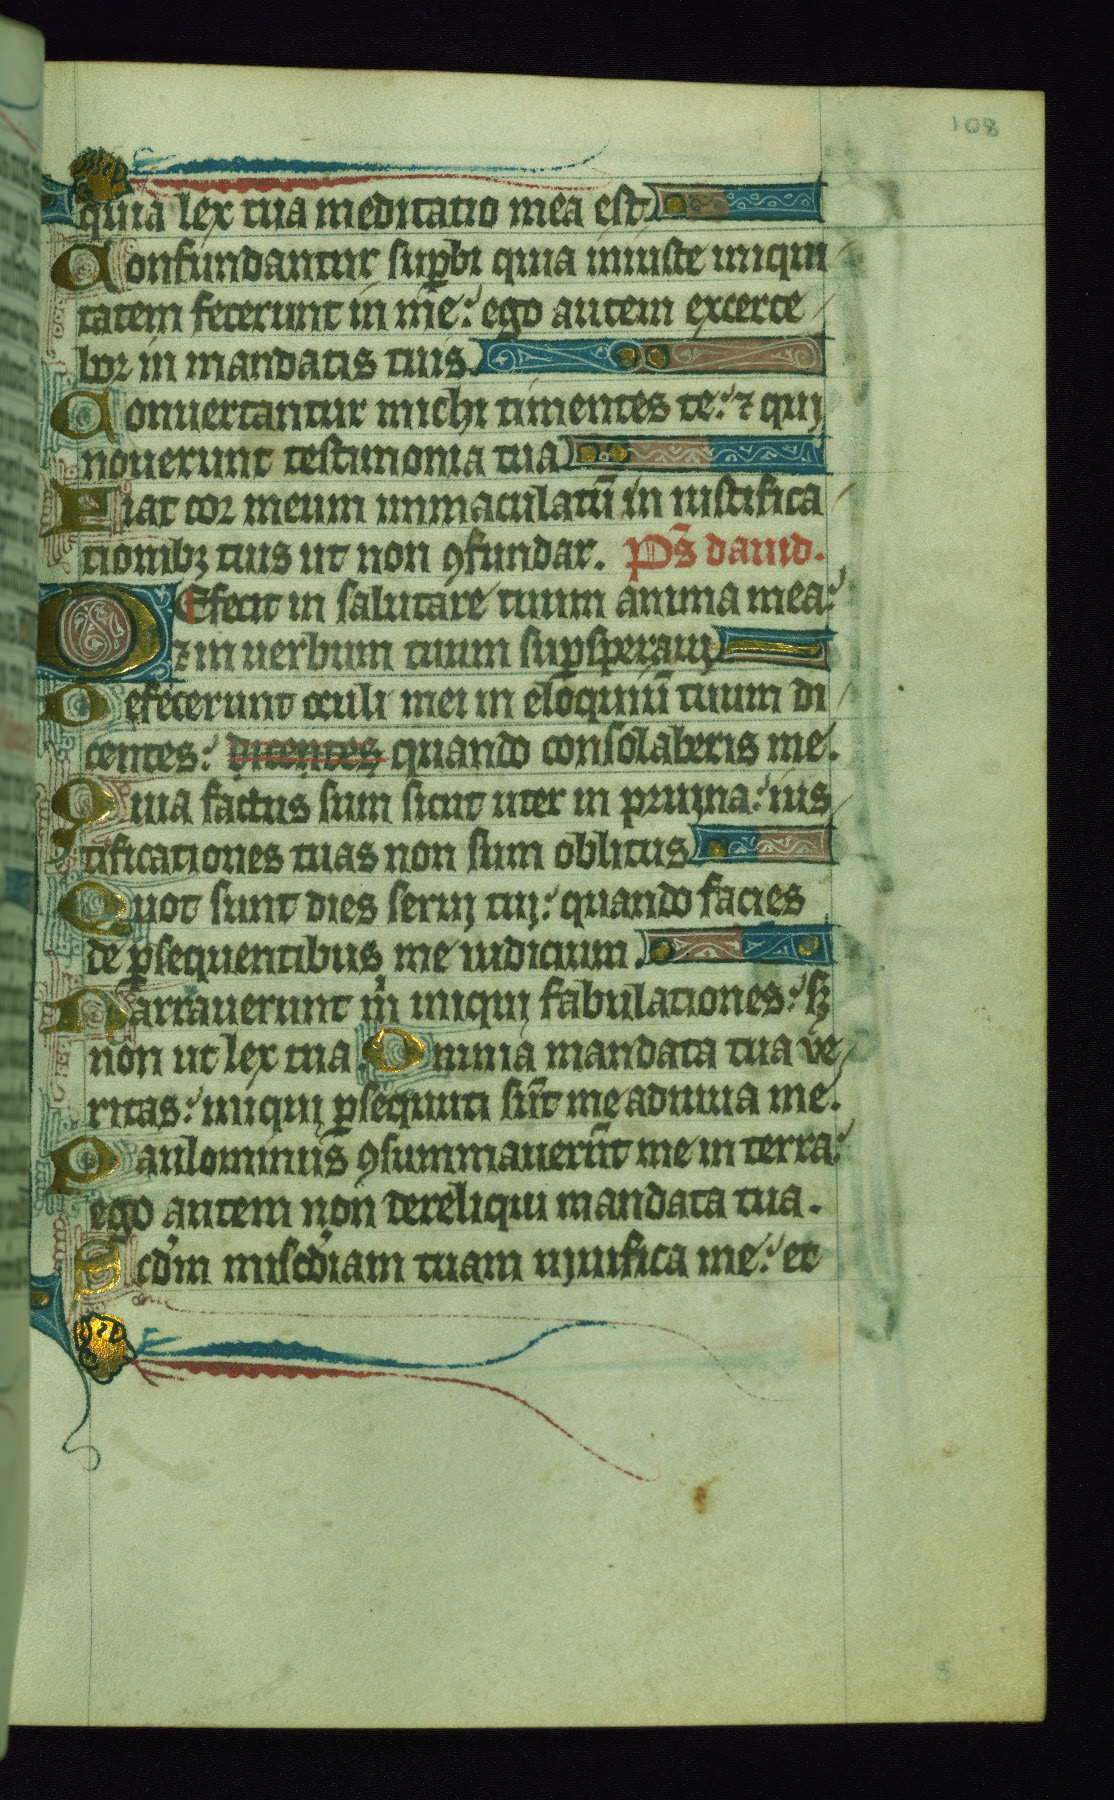 108
quia lex tua meditatio mea est
Confundantur sup̱bi quia iniuste iniqui
tatem fecerunt in me: ego autem excerce
bor in mandatis tuis.
Conuertantur michi timentes te: ⁊ qui
nouerunt testimonia tua
Fiat cor meum immaculatū in iustifica
tionibꝫ tuis ut non ꝯfundar. Ps̄ dauid.
DEfecit in salutare tuum anima mea:
⁊ in uerbum tuum suꝑsperauj
Defecerunt oculi mei in eloquiū tuum di
centes: dicentes quando consolaberis me.
Quia factus sum sicut uter in pruina: ius
tificationes tuas non sum oblitus
Quot sunt dies seruj tuj: quando facies
de ꝑsequentibus me iudicium.
Narrauerunt m̍ iniquj fabulationes: sꝫ
non ut lex tua. Omnia mandata tua ve
ritas: iniquj ꝑsequuti sūt me adiuua me.
Paulominus ꝯsummauerūt me in terra:
ego autem non dereliqui mandata tua.
Scd̄m misc̄diam tuam ujuifica me: et